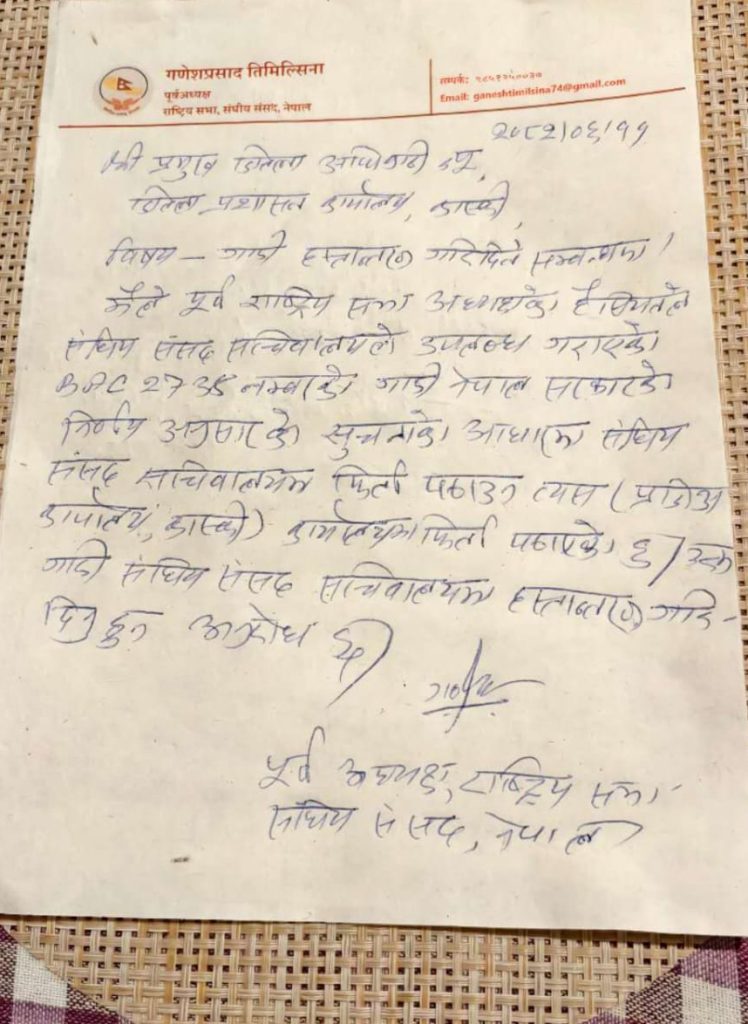 गणेशप्रसाद तिमिल्सिना
पूर्वअध्यक्ष
राष्ट्रिय सभा, संघीय संसद, नेपाल
सम्पर्कः
Email: ganeshtimilsina74@gmail.com
२०८२/०६/११
श्री प्रमुख जिल्ला अधिकारी ज्यू,
जिल्ला प्रशासन कार्यालय, कास्की,
विषय - गाडी हस्तान्तरण गरिदिने सम्बन्धमा ।
मैले पूर्व राष्ट्रिय सभा अध्यक्षको हैसियतले
संघिय संसद सचिवालयले उपलब्ध गराएको
2738 नम्बरको गाडी नेपाल सरकारको
निर्णय अनुसारको सुचनाको आधारमा संघिय
संसद सचिवालयमा फिर्ता पठाउन त्यस (प्रजिअ
कार्यालय, कास्की) कार्यालयमा फिर्ता पठाएको छु । उक्त
गाडी संघिय संसद सचिवालयमा हस्तान्तरण गरि-
दिनु हुन अनुरोध छ ।
पूर्व अध्यक्ष, राष्ट्रिय सभा
संघिय संसद, नेपाल